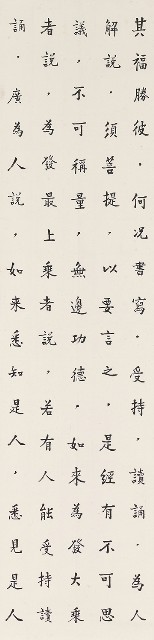 其福勝彼，何况書寫，受持，讀誦，為人
解說，須菩提，以要言之，是經有不可思
議，不可稱量，無邊功德，如來為發大乘
者說，為發最上乘者說，若有人能受持讀
誦，廣為人說，如來悉知是人，悉見是人